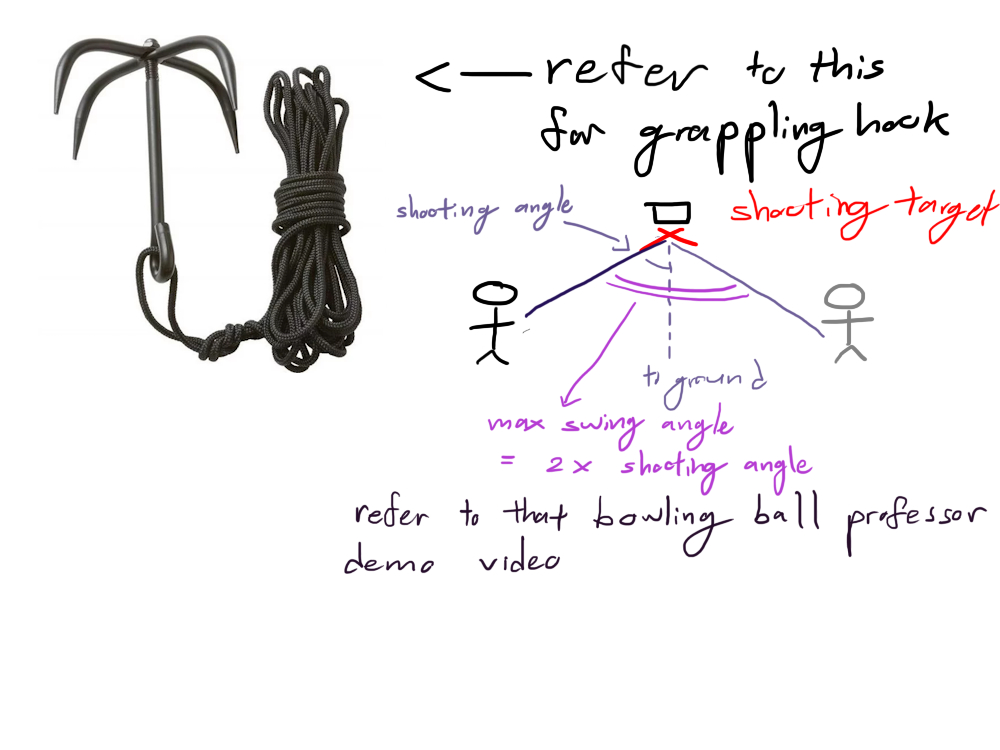 <— refer to this
for grappling hook
shooting angle
shooting target
to ground
max swing angle
= 2 x shooting angle
refer to that bowling ball professor
demo video